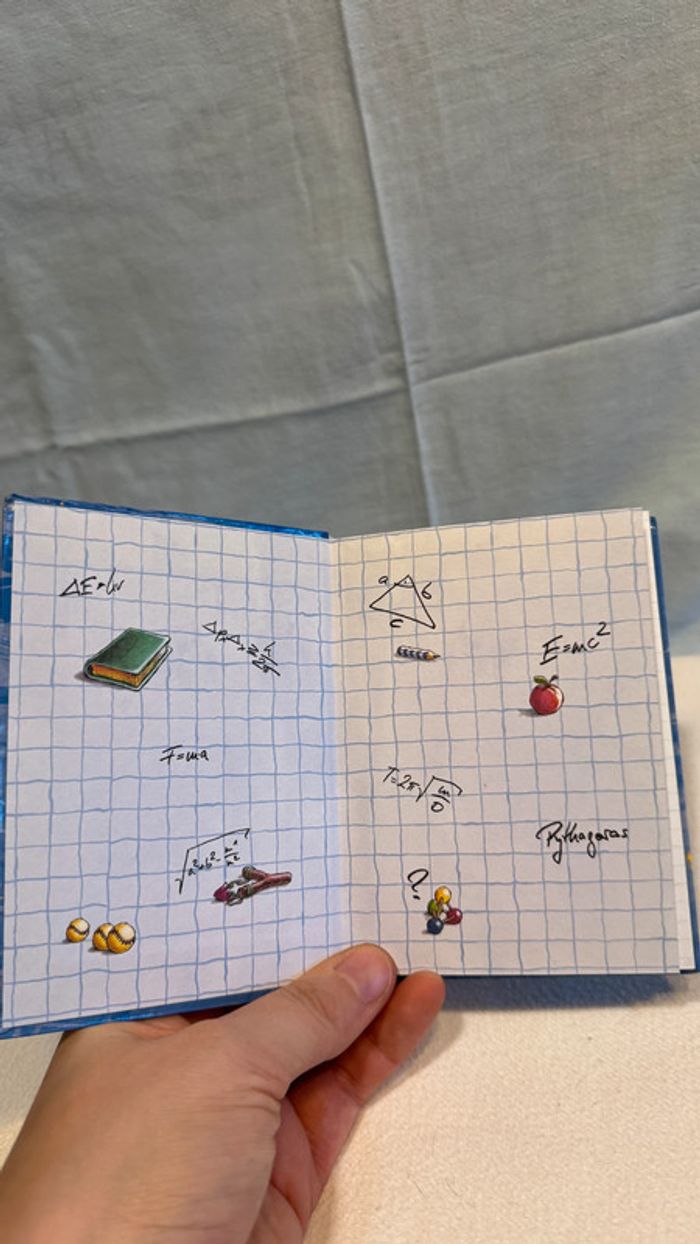 ΔE=hν
F=ma
a
b
c
E=mc²
T=2π√m/D
Pythagoras
?